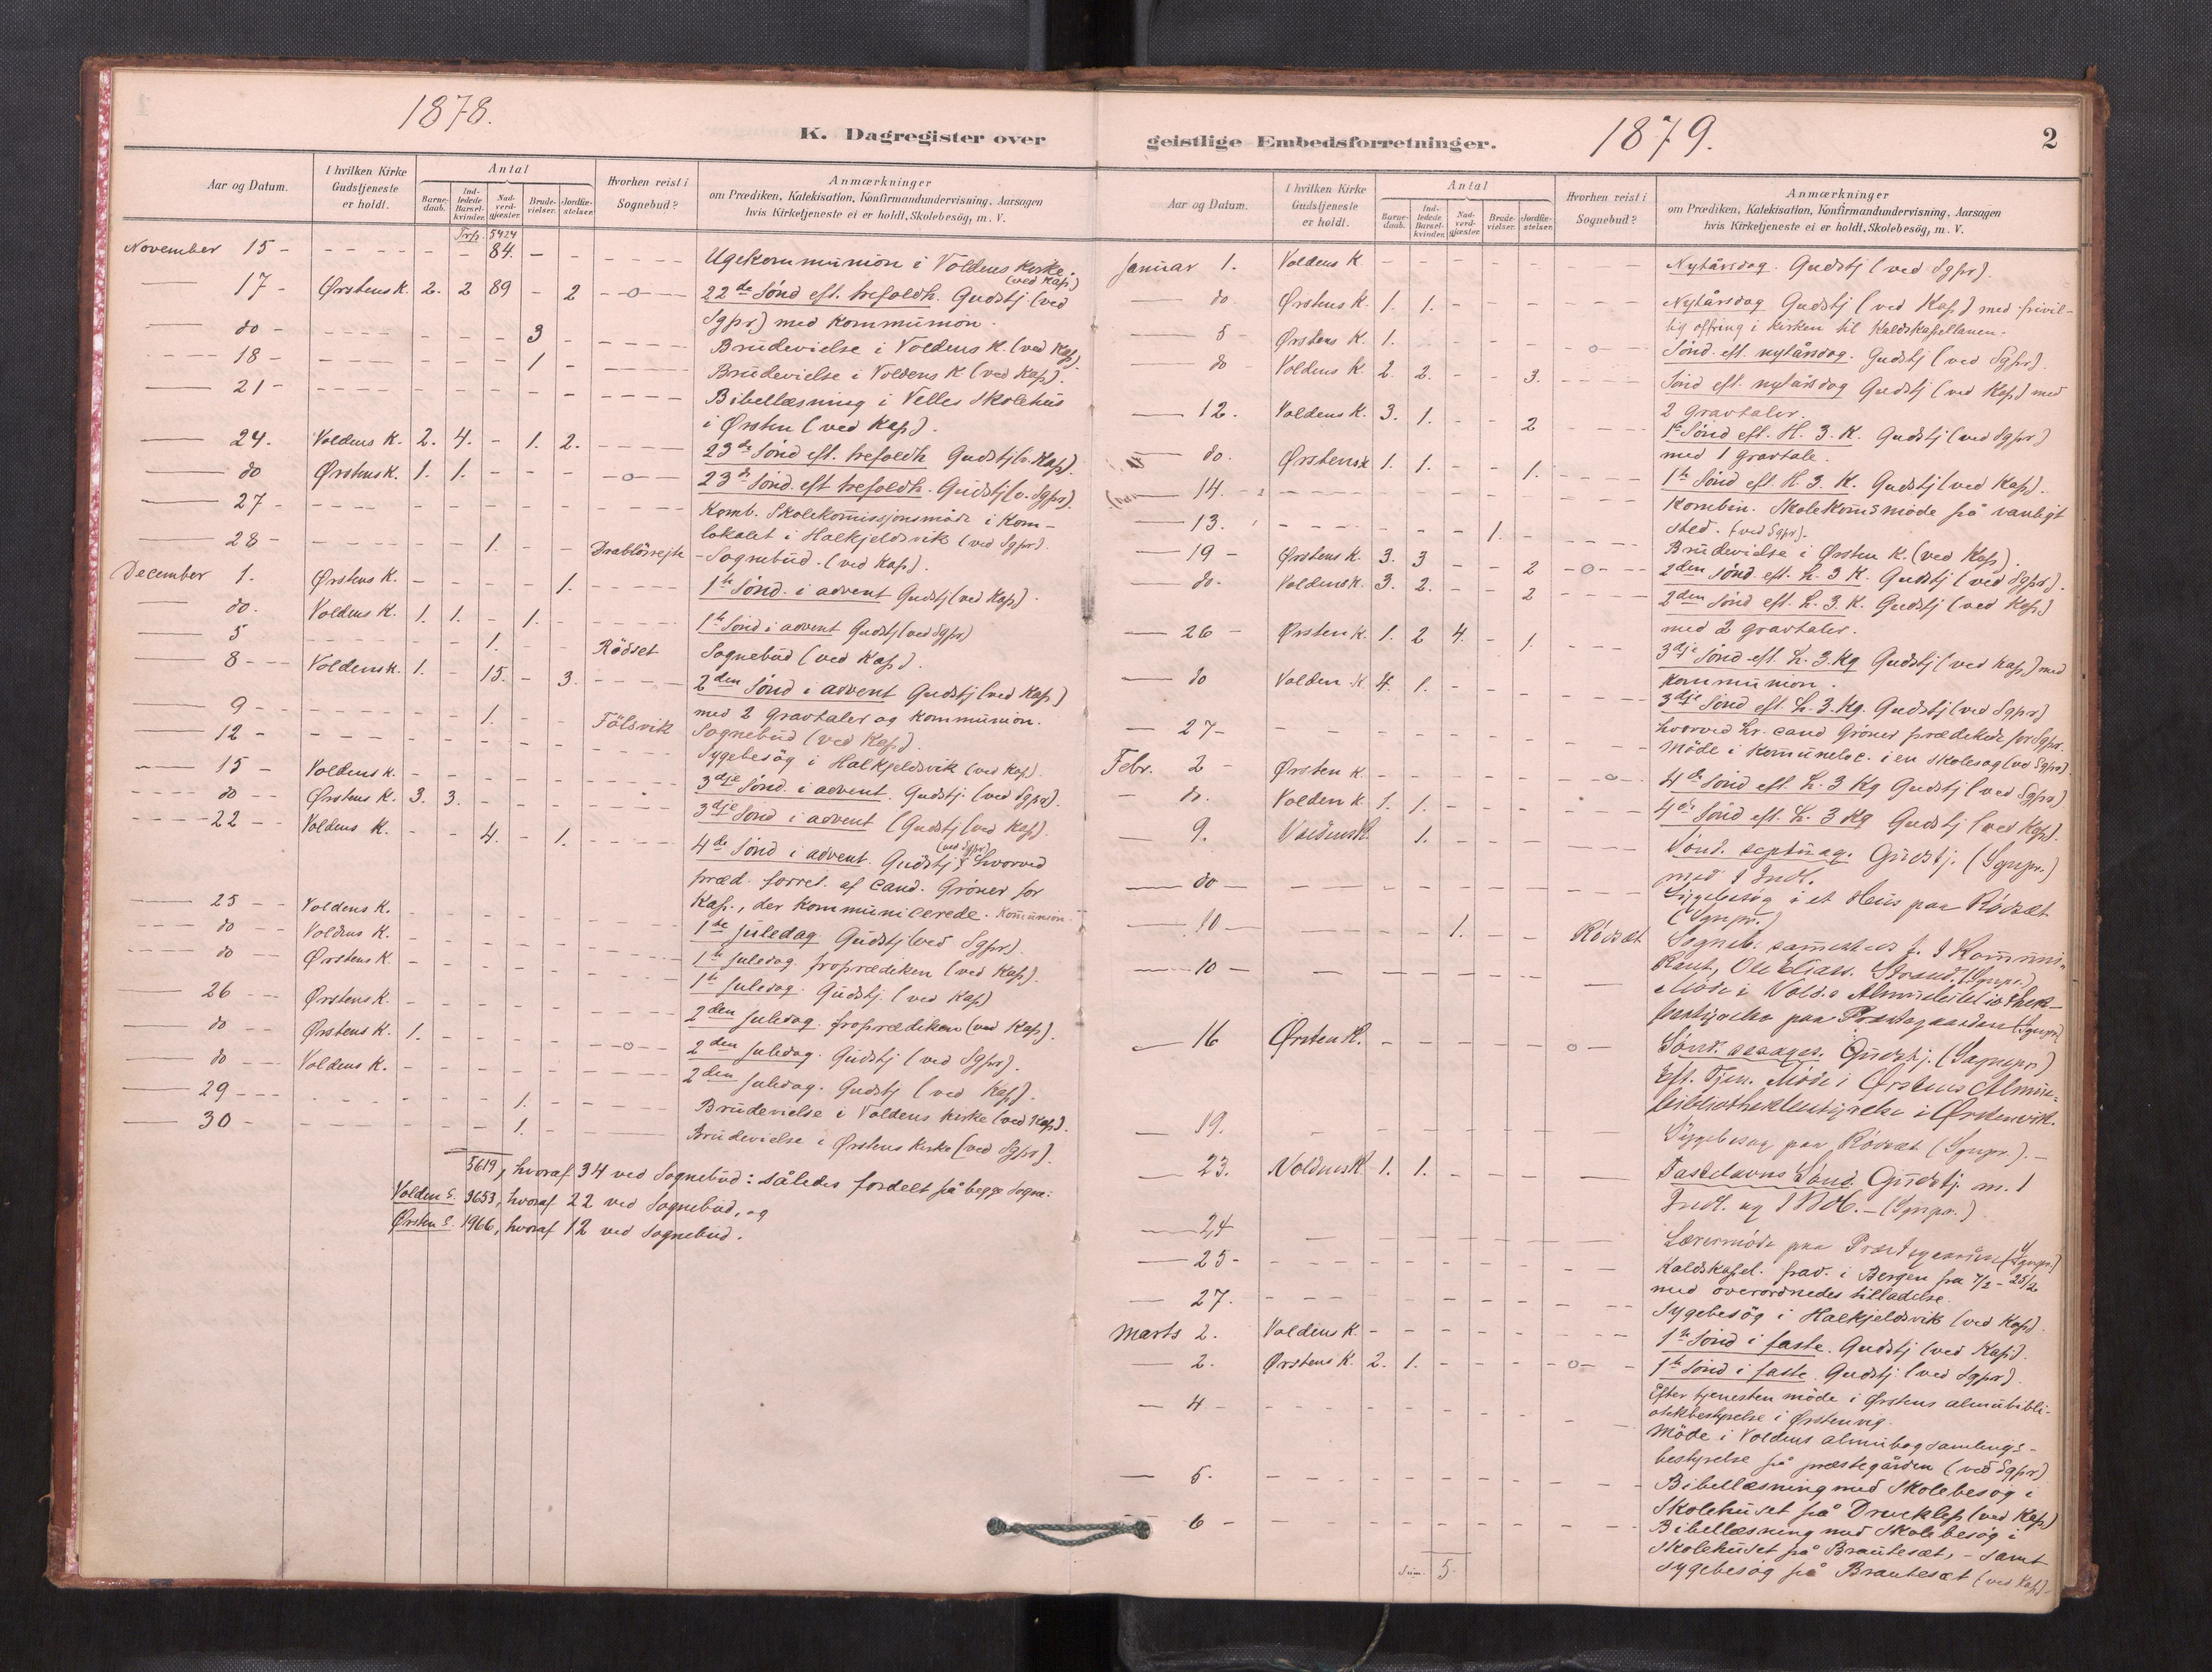 1878.
K. Dagregister over
Aar og Datum. I hvilken Kirke Gudstjeneste er holdt. Antal Barnedaab. Indledede Barselkvinder. Nadverdgjæster. Brudevielser. Jordfæstelser. Hvorhen reist i Sognebud? Anmærkninger
om Prædiken, Katekisation, Konfirmandundervisning, Aarsagen
hvis Kirketjeneste ei er holdt, Skolebesög, m. V.
Trsp. 5424
November 15 - - - - - - 84. - - - - - Ugekommunion i Voldens Kirke.
(ved Kap)
17 - Ørstens K. 2. 2 89 - 2 - o - 22de Sönd eft. trefoldh. Gudstj (ved
Sgpr) med Kommunion.
do - - - - - 3 - - - - Brudevielse i Voldens K. (ved Kap)
18 - - - - - 1 - - - - Brudevielse i Voldens K (ved Kap).
21 - - - - - - - - - - Bibellæsning i Velles Skolehus
i Ørsten (ved Kap).
24. Voldens K. 2. 4. - 1. 2. - - - 23de Sönd eft. trefoldh Gudstj (v. Kap).
do Ørstens K. 1. 1. - - - - o - 23de Sönd. eft trefoldh. Gudstj (v. Sgpr).
27 - - - - - - - - - - Komb. Skolekommissjonsmöde i Kom-
lokalet i Halkjeldsvik (ved Sgpr).
28 - - - - 1. - - Drablösrejte - Sognebud. (ved Kap).
December 1. Ørstens K. - - - - 1. - - - 1ste Sönd. i advent Gudstj (ved Kap).
do. Voldens K. 1. 1. - 1. - - - - 1ste Sönd i advent Gudstj (ved Sgpr)
5 - - - - 1. - - Rödset Sognebud (ved Kap).
8 - - - Voldens K. 1. - 15. - 3. - - - 2den Sönd i advent Gudstj (ved Kap)
med 2 Gravtaler og Kommunion.
9 - - - - 1. - - Fölsvik Sognebud (ved Kap).
12 - - - - - - - - - - Sygebesög i Halkjeldsvik (ved Kap).
15 - Voldens K. - - - - - - - - 3dje Sönd. i advent. Gudstj. (ved Sgpr).
do - Ørstens K. 3. 3. - - - - - - 3dje Sönd i advent (Gudstj (ved Kap).
22 - - Voldens K. - - 4. - 1. - - - 4de Sönd i advent. Gudstj (ved Sgpr) hvorved
præd. forret. af Cand. Gröner for
Kap., der kommunicerede. Kommunion.
25 - - Voldens K. - - - - - - - - 1ste juledag Gudstj (ved Sgpr).
do - - Voldens K. - - - - - - - - 1ste juledag froprædiken (ved Kap).
do - - Ørstens K. - - - - - - - - 1ste juledag. Gudstj. (ved Kap)
26 - - - Ørstens K. - - - - - - - - 2den juledag. froprædiken (ved Kap).
do - - Ørstens K. 1. - - - - - o - 2den juledag. Gudstj (ved Sgpr).
do - - Voldens K. - - - - - - - - 2den juledag. Gudstj (ved Kap).
29 - - - - - - 1. - - - Brudevielse i Voldens kirke (ved Kap).
30 - - - - - - 1. - - - Brudevielse i Ørstens kirke (ved Sgpr).
5619, hvoraf 34 ved Sognebud: således fordelt på begge Sogne:
Volden S. 3653, hvoraf 22 ved Sognebud, og
Ørsten S. 1966, hvoraf 12 ved Sognebud.
geistlige Embedsforretninger. 1879. 2
Aar og Datum. I hvilken Kirke Gudstjeneste er holdt. Antal Barnedaab. Indledede Barselkvinder. Nadverdgjæster. Brudevielser. Jordfæstelser. Hvorhen reist i Sognebud? Anmærkninger
om Prædiken, Katekisation, Konfirmandundervisning, Aarsagen
hvis Kirketjeneste ei er holdt, Skolebesög, m. V.
Januar 1. Voldens K - - - - - - - Nytårsdag. Gudstj (ved Sgpr).
do. Ørstens K. 1. 1. - - - - - - Nytårsdag Gudstj (ved Kap) med frivil-
lig offring i kirken til Kaldskapellanen.
5 - Ørstens K. 1. - - - - o - Sönd. eft. nytårsdag. Gudstj (ved Sgpr).
do Voldens K. 2. 2. - - 3. - - - Sönd eft. nytårsdag Gudstj (ved Kap) med
2 gravtaler.
12. Voldens K. 3. 1. - - 2 - - - 1ste Sönd eft. H. 3. K. Gudstj (ved Sgpr)
med 1 gravtale.
do. Ørstens K 1. 1. - - 1. - - - 1ste Sönd eft. H. 3. K. Gudstj (ved Kap).
14. - - - - - - - - Kombin. Skolekoms möde på vanligt
sted. (ved Sgpr).
13. - - - - - 1. - - - Brudevielse i Ørsten K. (ved Kap).
19 - Ørstens K. 3. 3 - - 2 - o - - 2den Sönd. eft. h. 3 K. Gudstj (ved Sgpr).
do. Voldens K. 3. 2. - - 2 - - - 2den Sönd eft. h. 3. K. Gudstj (ved Kap)
med 2 gravtaler.
26 - Ørsten K. 1. 2 4. - 1. - - - 3dje Sönd eft. h. 3. Kg Gudstj (ved Kap) med
Kommunion.
do Volden K 4. 1. - - - - - - 3dje Sönd eft. h. 3. Kg. Gudstj (ved Sgpr)
hvorved hr. cand Gröner prædikede for Sgpr.
27 - - - - - - - - - Möde i kommuneloc. i en skolesag (ved Sgpr).
Febr. 2 - Ørsten K. - - - - - - o - 4de Sönd eft. h. 3 Kg Gudstj (ved Sgpr)
do. Volden K. 1. 1. - - - - - - 4de Sönd eft. h. 3 Kg Gudstj (ved Kap).
9. Voldens K. 1. - - - - - - Sönd. septuag. Gudstj. (Sgnpr.)
med 1 Indl.
do - - - - - - - - - Sygebesög i et Huus paa Rödsæt
(Sgnpr.)
10 - - - - 1. - - Rödsæt Sogneb. sammesteds f. 1 Kommuni-
kant, Ole Eliass. Strand. (Sgnpr.)
10 - - - - - - - - Möde i Vold.s Almuebibliothek-
bestyrelse paa Præstegaarden (Sgnpr)
16 Ørsten K. - - - - - o - Sönd. sexages. Gudstj. (Sognepr)
Eft. Tjen. Möde i Ørstens Almue-
bibliothekbestyrelse i Ørstenvik.
19. - - - - - - - - Sygebesög paa Rödsæt (Sgnpr.). -
23. Voldens K 1. 1. - - - - - Fastelavns Sönd. Gudstj. m. 1
Indl. og 1 Bd. - (Sgnpr.)
24 - - - - - - - - Lærermöde paa Præstegaarden (Sgnpr.)
25 - - - - - - - - - Kaldskapel. frav. i Bergen fra 7/2 - 25/2
med overordnedes tilladelse.
27. - - - - - - - - - Sygebesög i Halkjeldsvik (ved Kap).
Marts 2. Voldens K. - - - - - - - 1ste Sönd i faste. Gudstj (ved Kap).
2. Ørstens K. 2. 1. - - - - o - 1ste Sönd i faste. Gudstj. (ved Sgpr).
Efter tjenesten möde i Ørstens almuebibli-
otekbestyrelse i Ørstenvig.
4 - - - - - - - - - Möde i Voldens almuebogsamlings-
bestyrelse på præstegården (ved Sgpr)
5. - - - - - - - - - Bibellæsning med Skolebesög i
Skolehuset på (ved Kap)
6 - - - - - - - - - Bibellæsning med Skolebesög i
Skolehuset på Brautesæt, - samt
Sygebesög på Brautesæt (ved Kap).
Sum. 5.